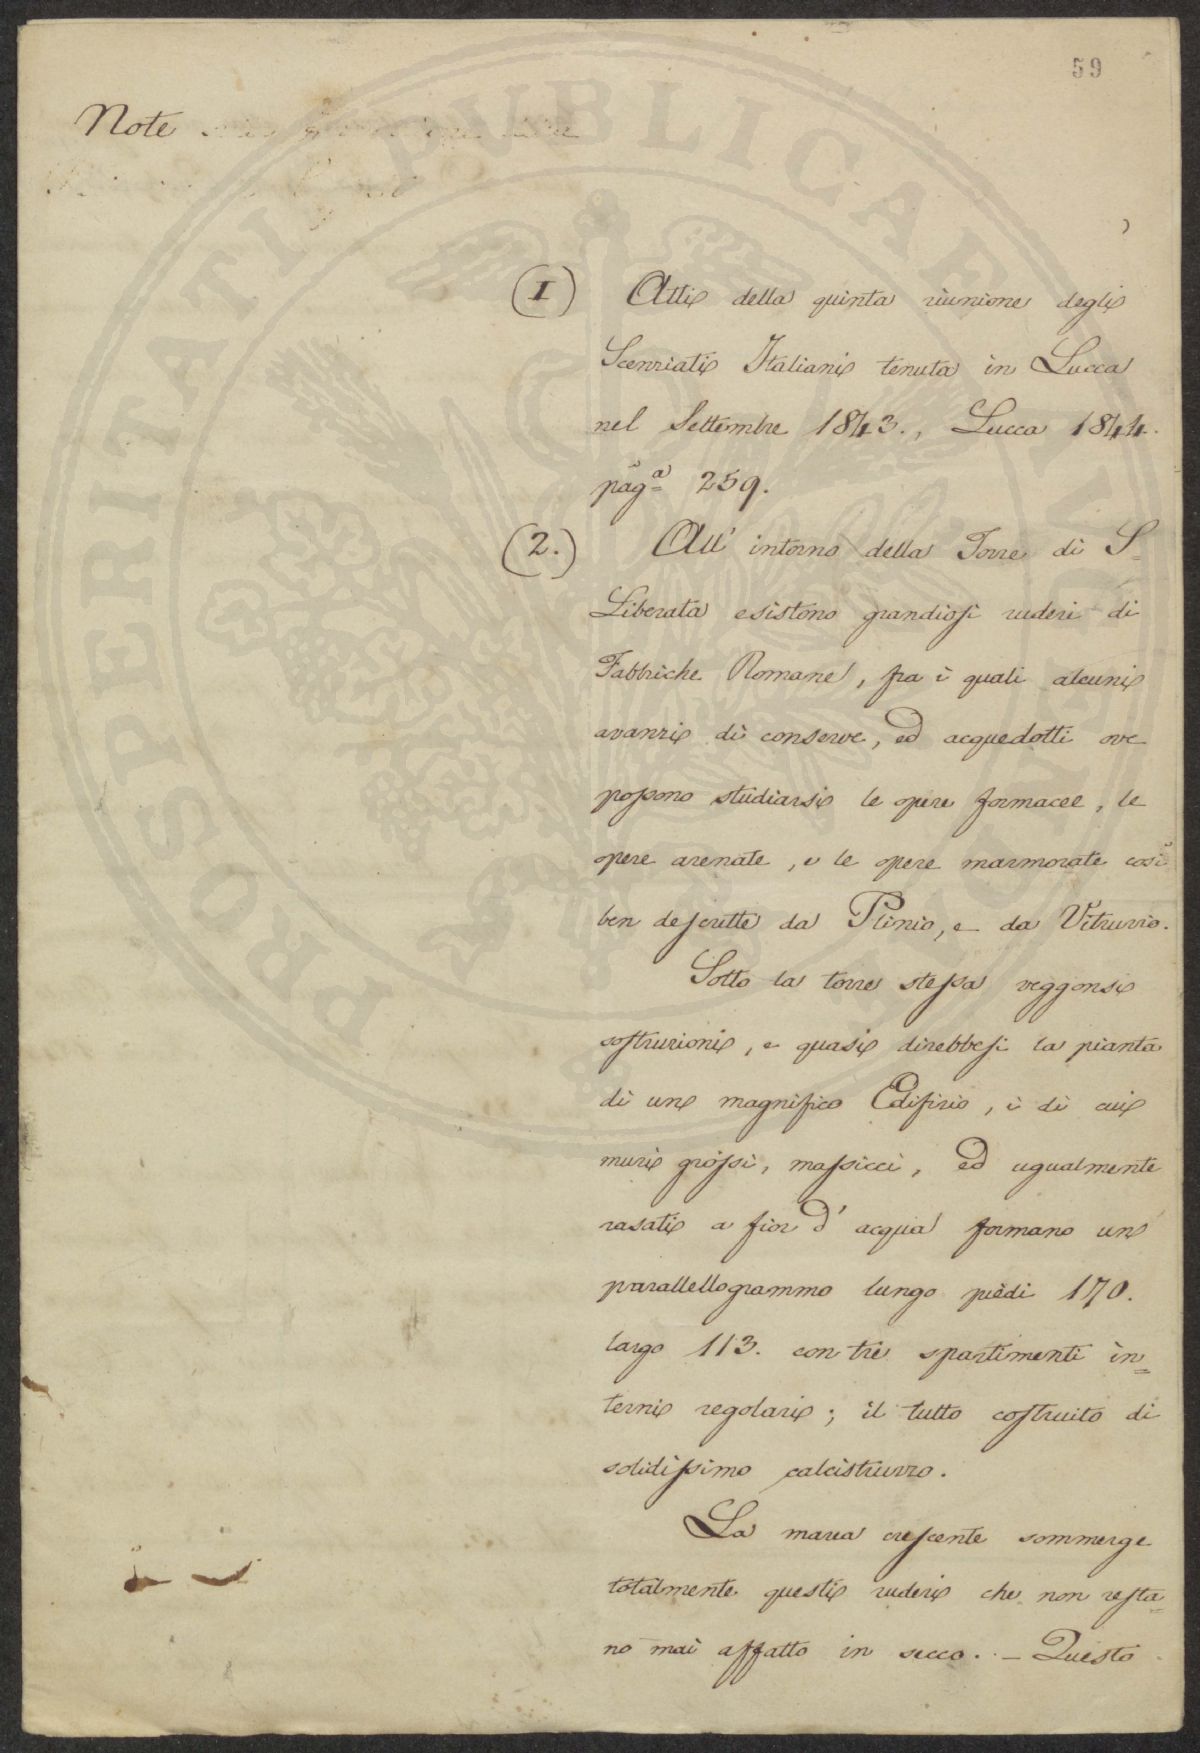 59
Note
(1) Atti della quinta riunione degli
Scenziati Italiani tenuta in Lucca
nel Settembre 1843., Lucca 1844.
pagª 259.
(2.) All' intorno della Torre di S.
Liberata esistono grandiosi ruderi di
Fabbriche Romane, fra i quali alcuni
avanzi di conserve, ed acquedotti ove
possono studiarsi le opere formacee, le
opere arenate, e le opere marmorate così
ben descritte da Plinio, e da Vitruvio.
Sotto la torre stessa veggonsi
sostruzioni, e quasi direbbesi la pianta
di un magnifico Edifizio, i di cui
muri grossi, massicci, ed ugualmente
rasati a fior d' acqua formano un
parallellogrammo lungo piedi 170.
largo 113. con tre spartimenti in=
terni regolari; il tutto costruito di
solidissimo calcistruzzo.
La marea crescente sommerge
totalmente questi ruderi che non resta=
no mai affatto in secco. — Questo
PROSPERITATI PVBLICAE